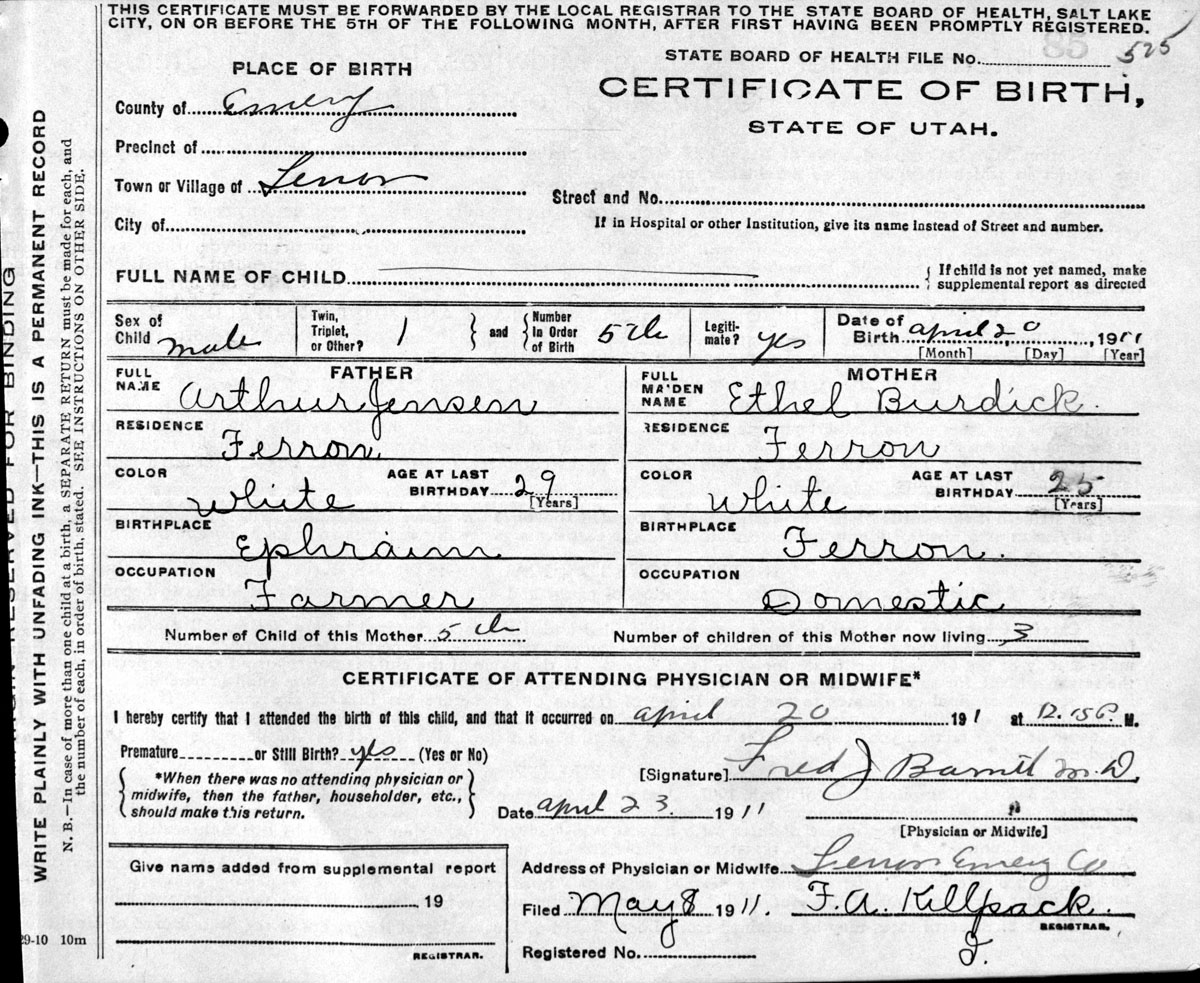 THIS CERTIFICATE MUST BE FORWARDED BY THE LOCAL REGISTRAR TO THE STATE BOARD OF HEALTH, SALT LAKE
CITY, ON OR BEFORE THE 5TH OF THE FOLLOWING MONTH, AFTER FIRST HAVING BEEN PROMPTLY REGISTERED.
85
STATE BOARD OF HEALTH FILE No. 525
PLACE OF BIRTH
CERTIFICATE OF BIRTH,
STATE OF UTAH.
County of Emery
Precinct of
Town or Village of Ferron
Street and No.
City of
If in Hospital or other Institution, give its name instead of Street and number.
FULL NAME OF CHILD
{ If child is not yet named, make
supplemental report as directed
Sex of Child male
Twin, Triplet, or Other? 1 } and { Number In Order of Birth 5th
Legiti- mate? yes
Date of Birth april 20, 1911
[Month] [Day] [Year]
FATHER
FULL NAME Arthur Jensen
MOTHER
FULL MAIDEN NAME Ethel Burdick.
RESIDENCE Ferron
RESIDENCE Ferron
COLOR White AGE AT LAST BIRTHDAY 29 [Years]
COLOR White AGE AT LAST BIRTHDAY 25 [Years]
BIRTHPLACE Ephraim
BIRTHPLACE Ferron.
OCCUPATION Farmer
OCCUPATION Domestic
Number of Child of this Mother 5th Number of children of this Mother now living 3
CERTIFICATE OF ATTENDING PHYSICIAN OR MIDWIFE*
I hereby certify that I attended the birth of this child, and that it occurred on april 20 1911 at 12.15 P. M.
Premature or Still Birth? yes (Yes or No)
{ *When there was no attending physician or
midwife, then the father, householder, etc.,
should make this return. }
[Signature] Fred J M.D.
Date april 23 1911
[Physician or Midwife]
Give name added from supplemental report
19
REGISTRAR.
Address of Physician or Midwife Ferron Emery Co
Filed May 8 1911. F. A. Killpack.
REGISTRAR.
Registered No.
29-10 10m
MARGIN RESERVED FOR BINDING
WRITE PLAINLY WITH UNFADING INK—THIS IS A PERMANENT RECORD
N. B.—In case of more than one child at a birth, a SEPARATE RETURN must be made for each, and
the number of each, in order of birth, stated. SEE INSTRUCTIONS ON OTHER SIDE.